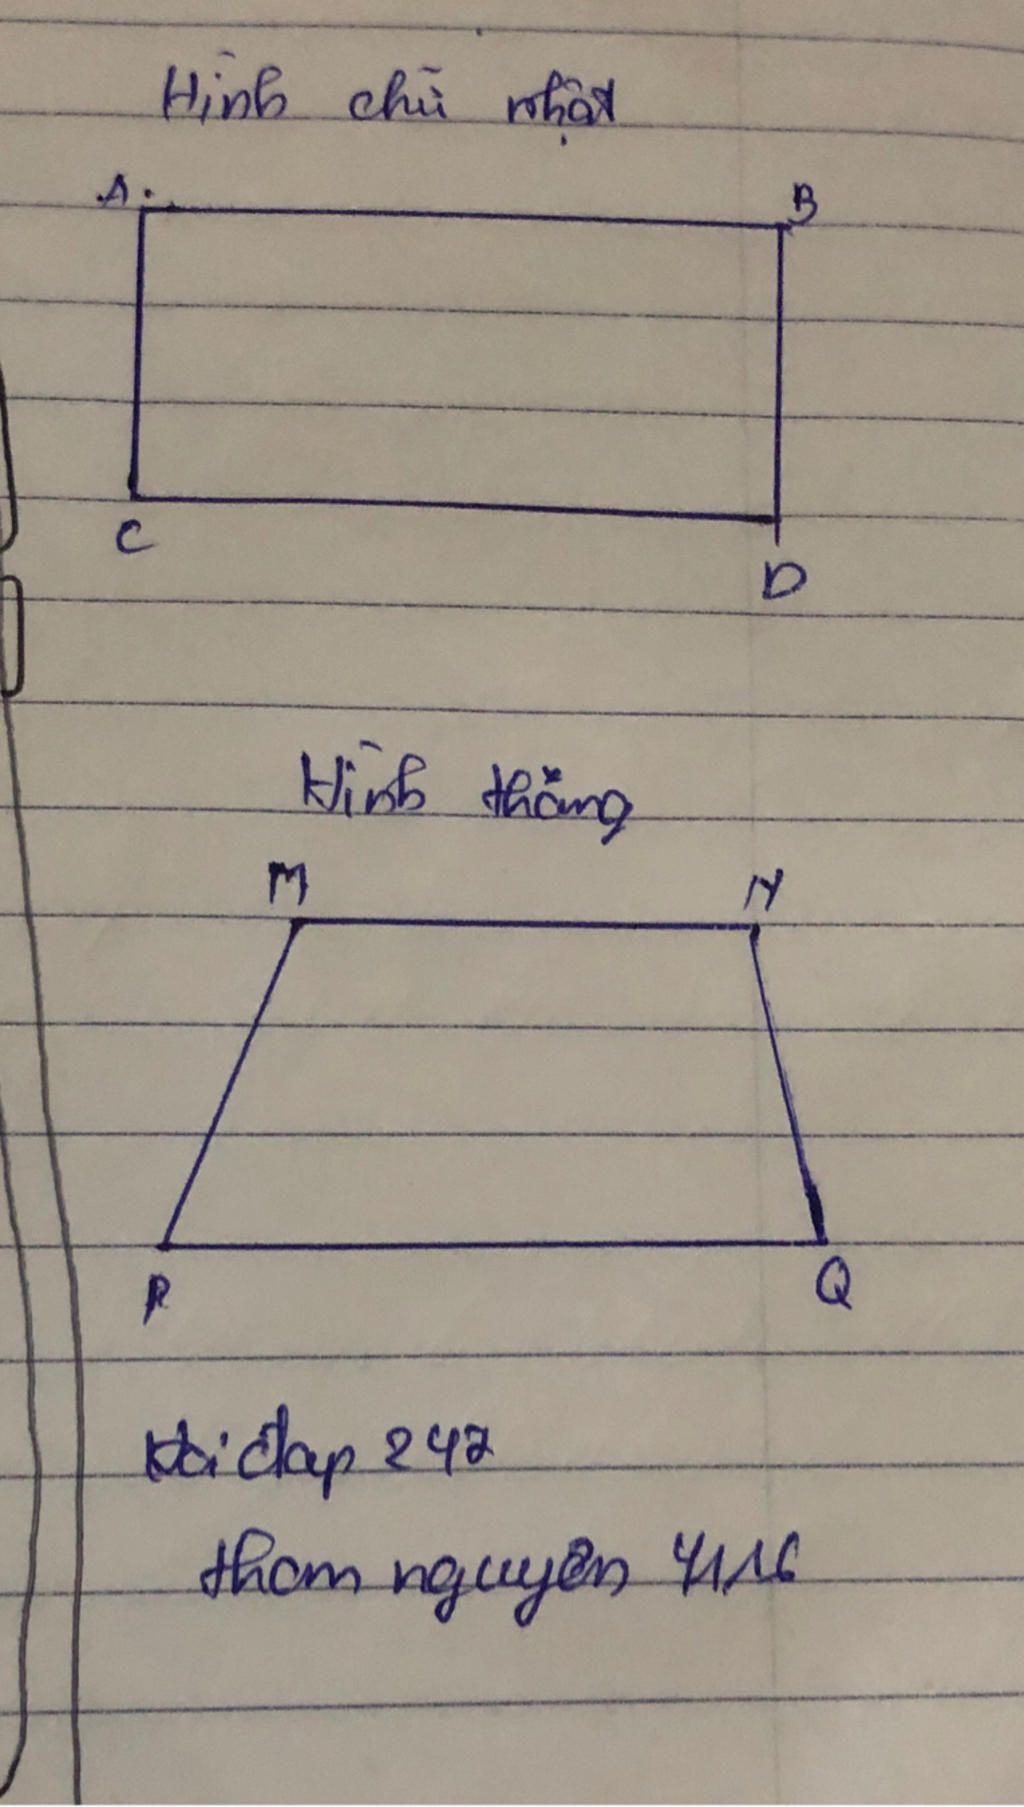 Hình chữ nhật
A B
C D
Hình thăng
M N
P Q
Hỏi đap 247
tham nguyên 4116